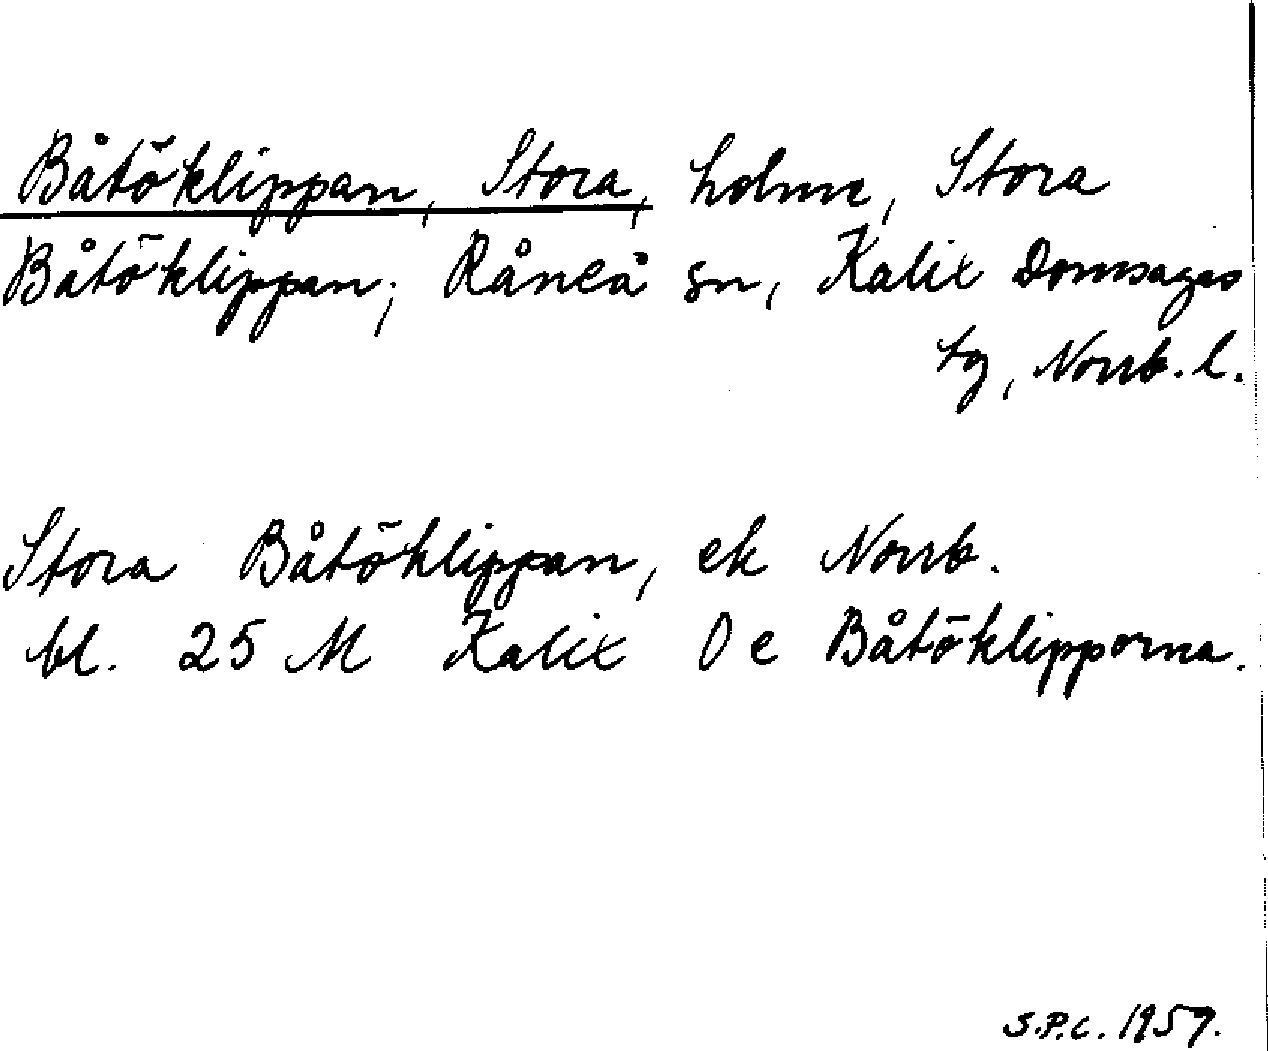 Båtöklippan, Stora, holme, Stora
Båtöklippan; Råneå sn, Kalix Domsagas
tg, Norrb. l.
Stora Båtöklippan, ek Norrb.
bl. 25 M Kalix O e Båtöklipporna.
S.P.C. 1959.